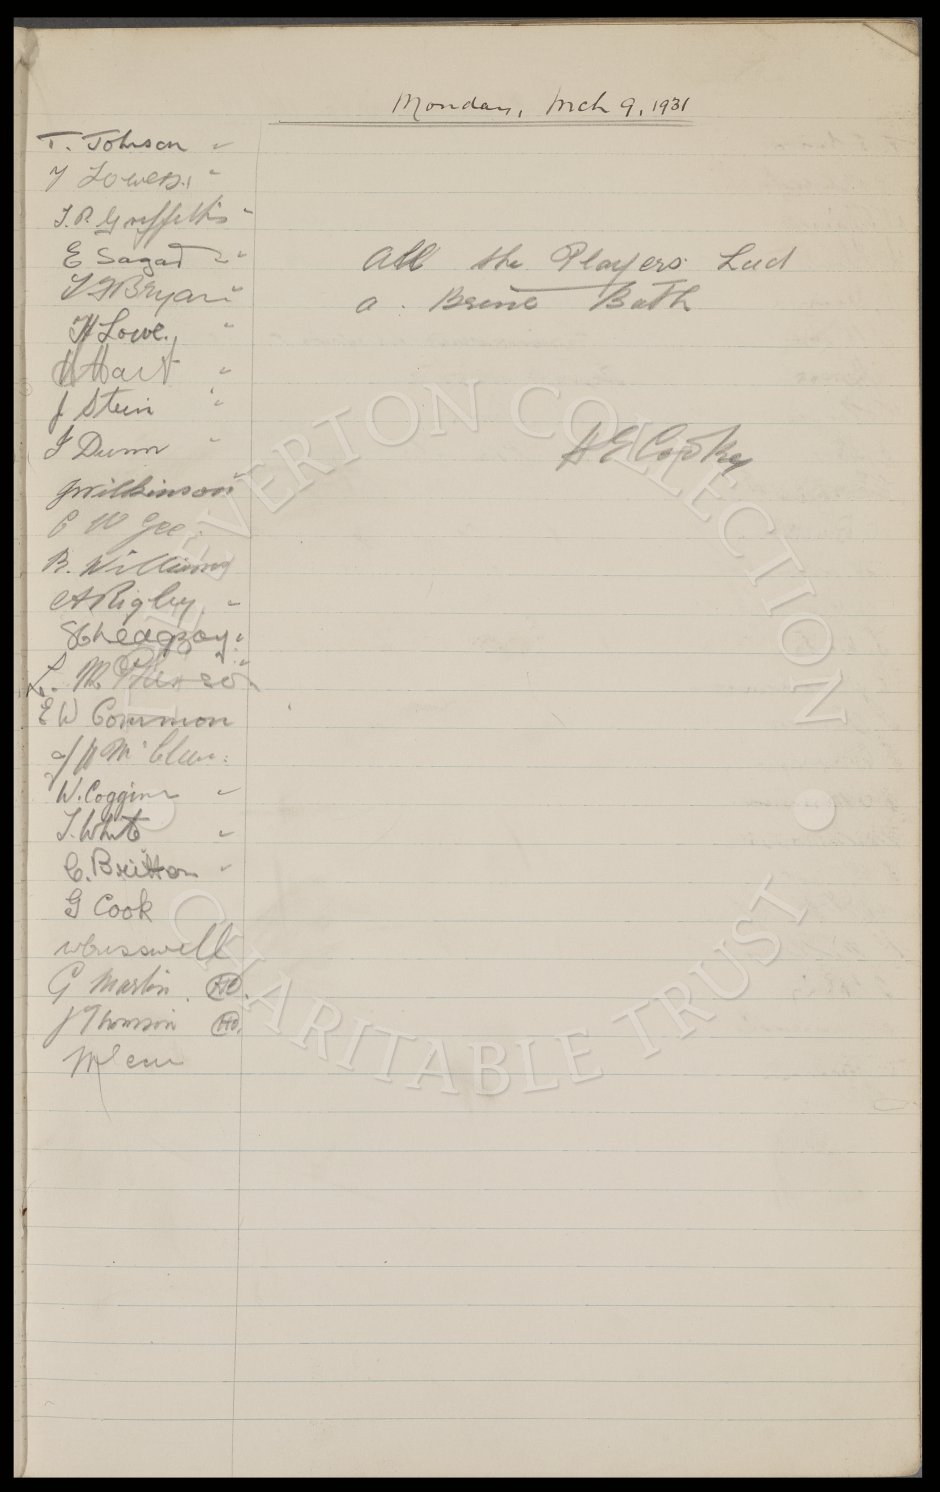 Monday, Mch 9, 1931
T. Johnson "
T Lowers, "
T. P. Griffiths "
E Sagar "
T H Bryan "
H Lowe. "
H Hart "
J Stein "
J Dunn "
J Wilkinson "
C W Gee.
B. Williams
A Rigby "
S Chedgzoy "
L. McPherson
E W Common
J H McClure.
W. Coggins "
T. White "
C. Britton "
G Cook
W Cresswell
G Martin. HO.
J Thomson HO.
All the Players had
a Brine Bath
H E Cooke
THE EVERTON COLLECTION
CHARITABLE TRUST